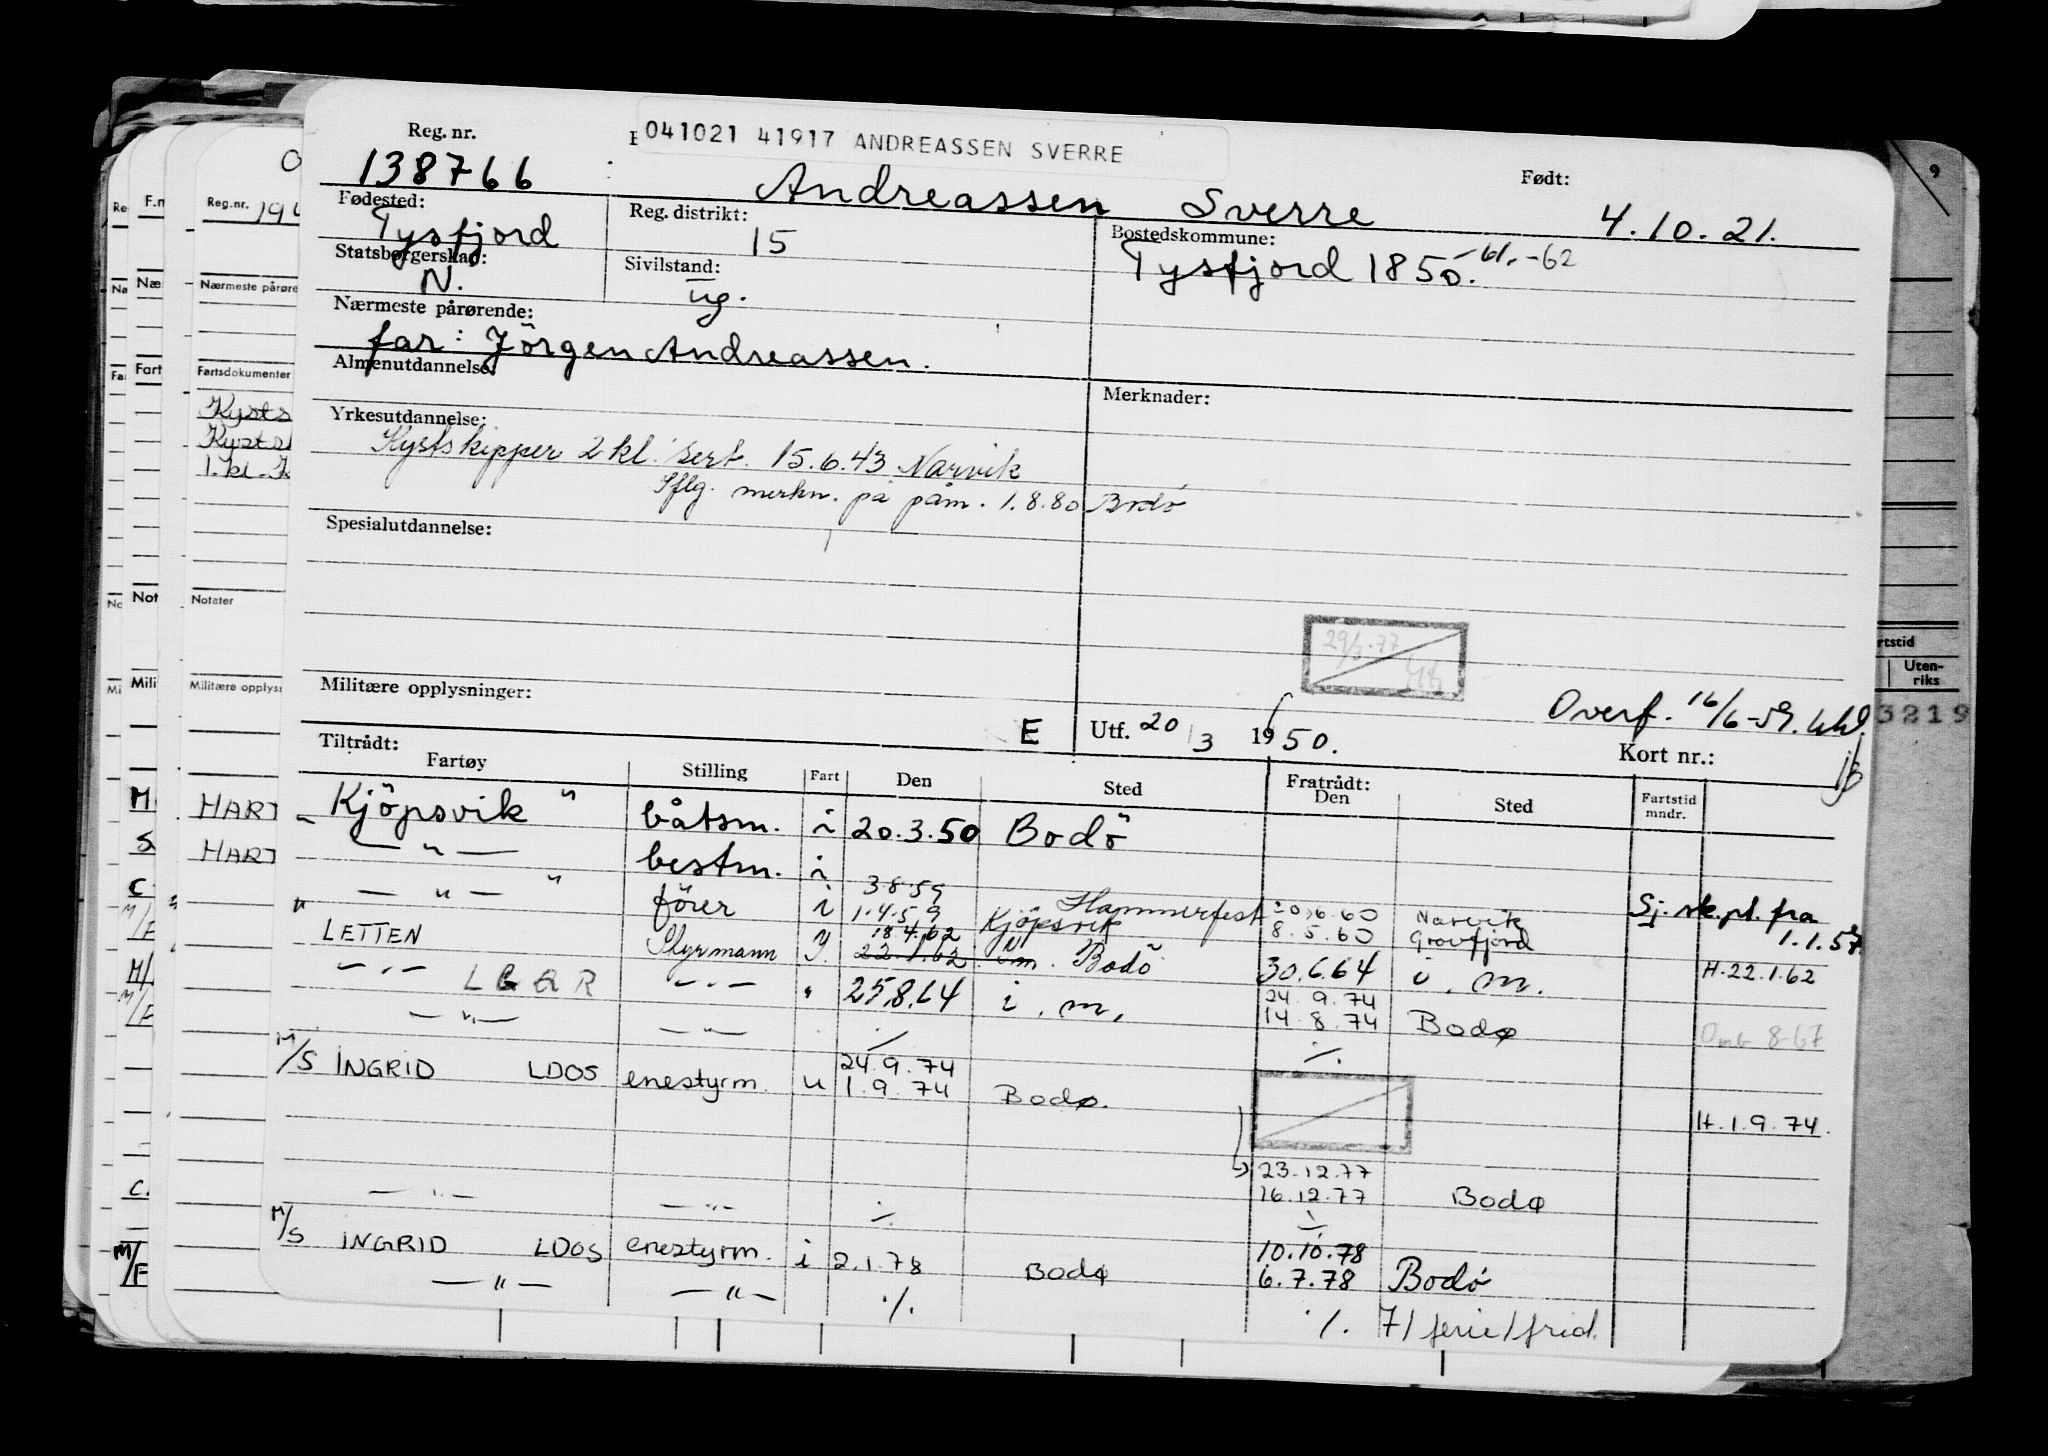 041021 41917 ANDREASSEN SVERRE
Reg. nr.
138766
Andreassen Sverre
Født:
4.10.21.
Fødested:
Tysfjord
Reg. distrikt:
15
Bostedskommune:
Tysfjord 1850. -61. -62
Statsborgerskap:
N.
Sivilstand:
ug.
Nærmeste pårørende:
far: Jörgen Andreassen.
Almenutdannelse:
Merknader:
Yrkesutdannelse:
Kystskipper 2 kl. sert. 15.6.43 Narvik
Sflg. merkn. på påm. 1.8.80 Bodø
Spesialutdannelse:
29/3-77
Militære opplysninger:
E
Utf. 20/3 1950.
Overf. 16/6-59.
Kort nr.:
Tiltrådt:
Fartøy Stilling Fart Den Sted Fratrådt: Den Sted Fartstid mndr.
Kjöpsvik båtsm. i 20.3.50 Bodö
— " — bestm. i
3.8.59 Hammerfest 20.6.60 Narvik Sj. sk.pl. fra
— " — förer i 1.4.59 Kjöpsvik 8.5.60 Grovfjord 1.1.57
18.4.62
LETTEN Styrmann 22.1.62 i m. Bodö 30.6.64 i. m. H. 22.1.62
— " — LGQR — " — " 25.8.64 i. m. 24.9.74
14.8.74 Bodø Omb 8-67
— " — — " — ./. ./.
24.9.74
M/S INGRID LDOS enestyrm. u 1.9.74 Bodø.
H. 1.9.74.
23.12.77
16.12.77 Bodø
— " — — " — ./. ./.
10.10.78
M/S INGRID LDOS enestyrm. i 2.1.78 Bodø 6.7.78 Bodö
— " — — " — ./. ./. 7/ ferie/frid.
Reg.nr. 194
Nærmeste pårøre
Fartsdokumenter
Kysts
Kysts
1. kl.
Notater
Militære opplys
HART
HART
F.n
Næ
Fart
Not
Mili
9
rtstid
Uten-
riks
3219